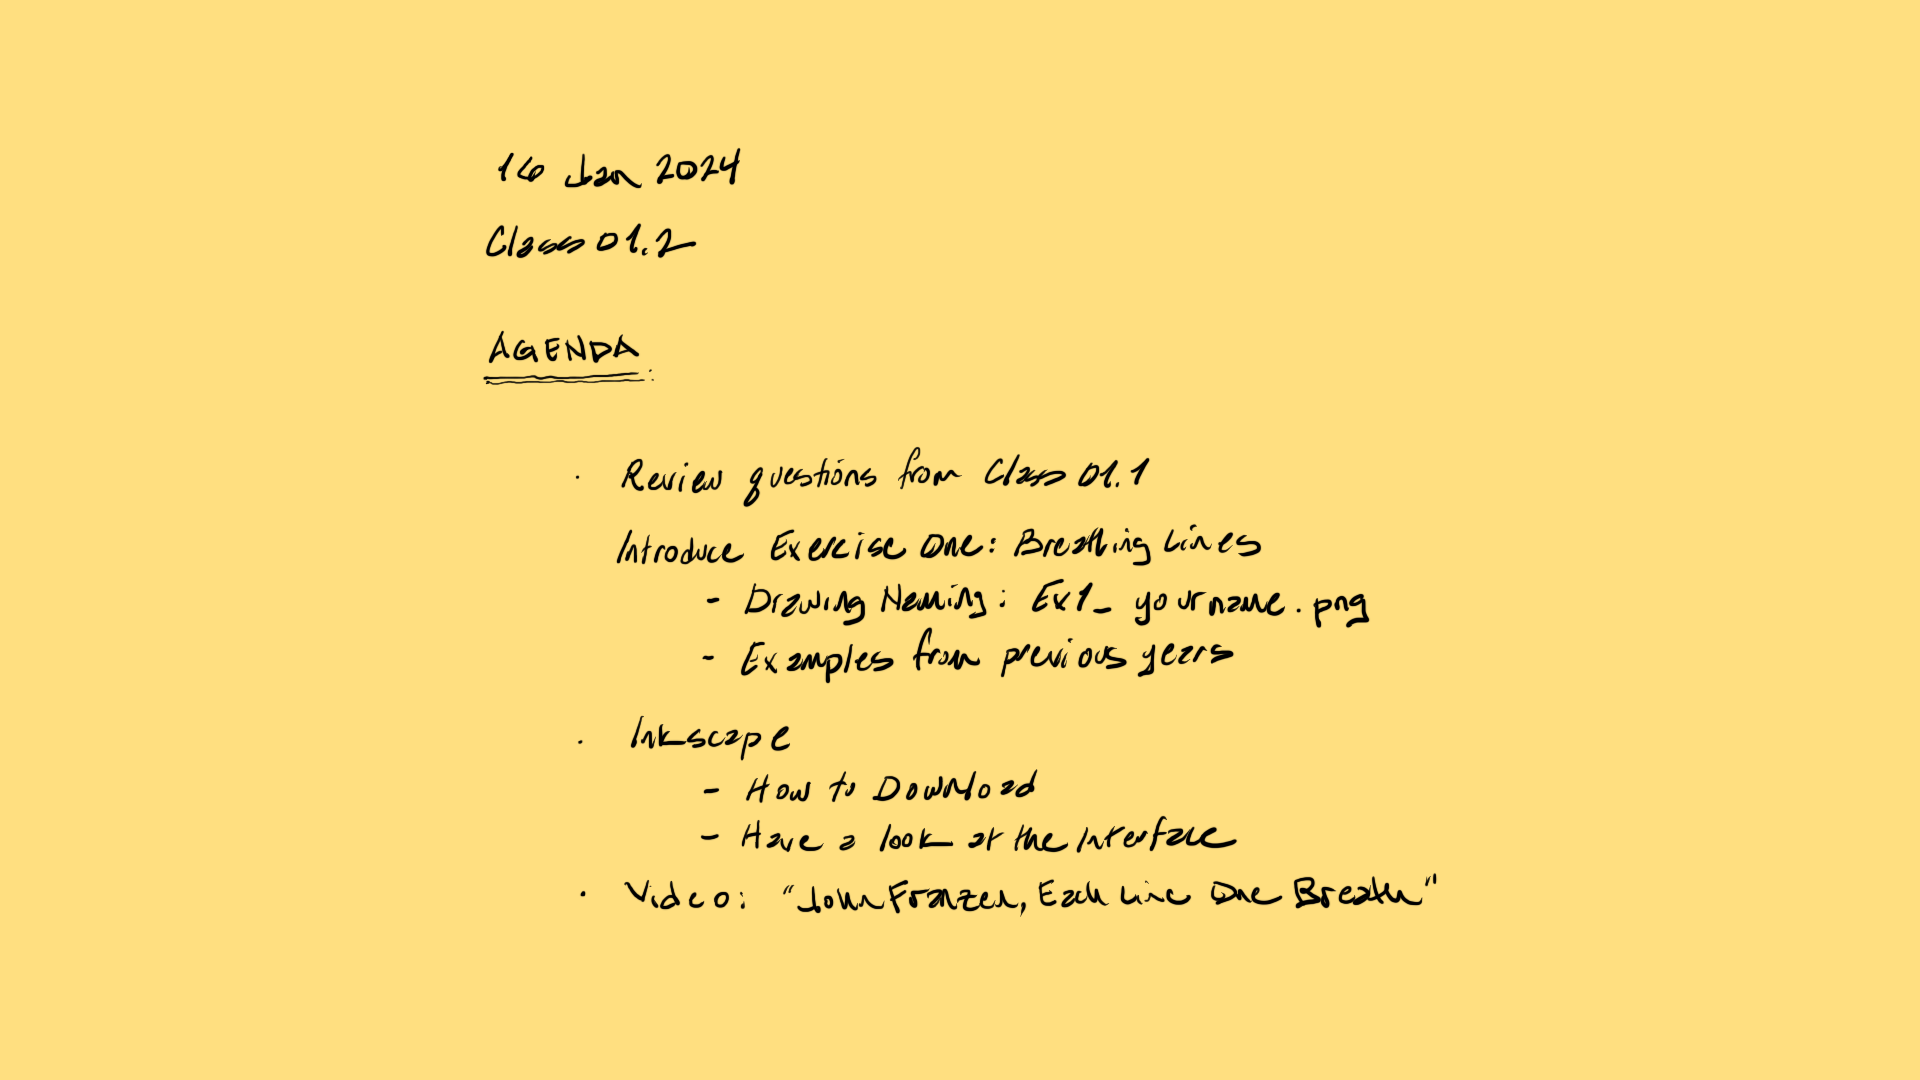 16 Jan 2024
Class 01.2
AGENDA:
· Review questions from Class 01.1
Introduce Exercise One: Breathing Lines
- Drawing Naming: Ex1_yourname.png
- Examples from previous years
· Inkscape
- How to Download
- Have a look at the Interface
· Video: "John Franzen, Each Line One Breath"